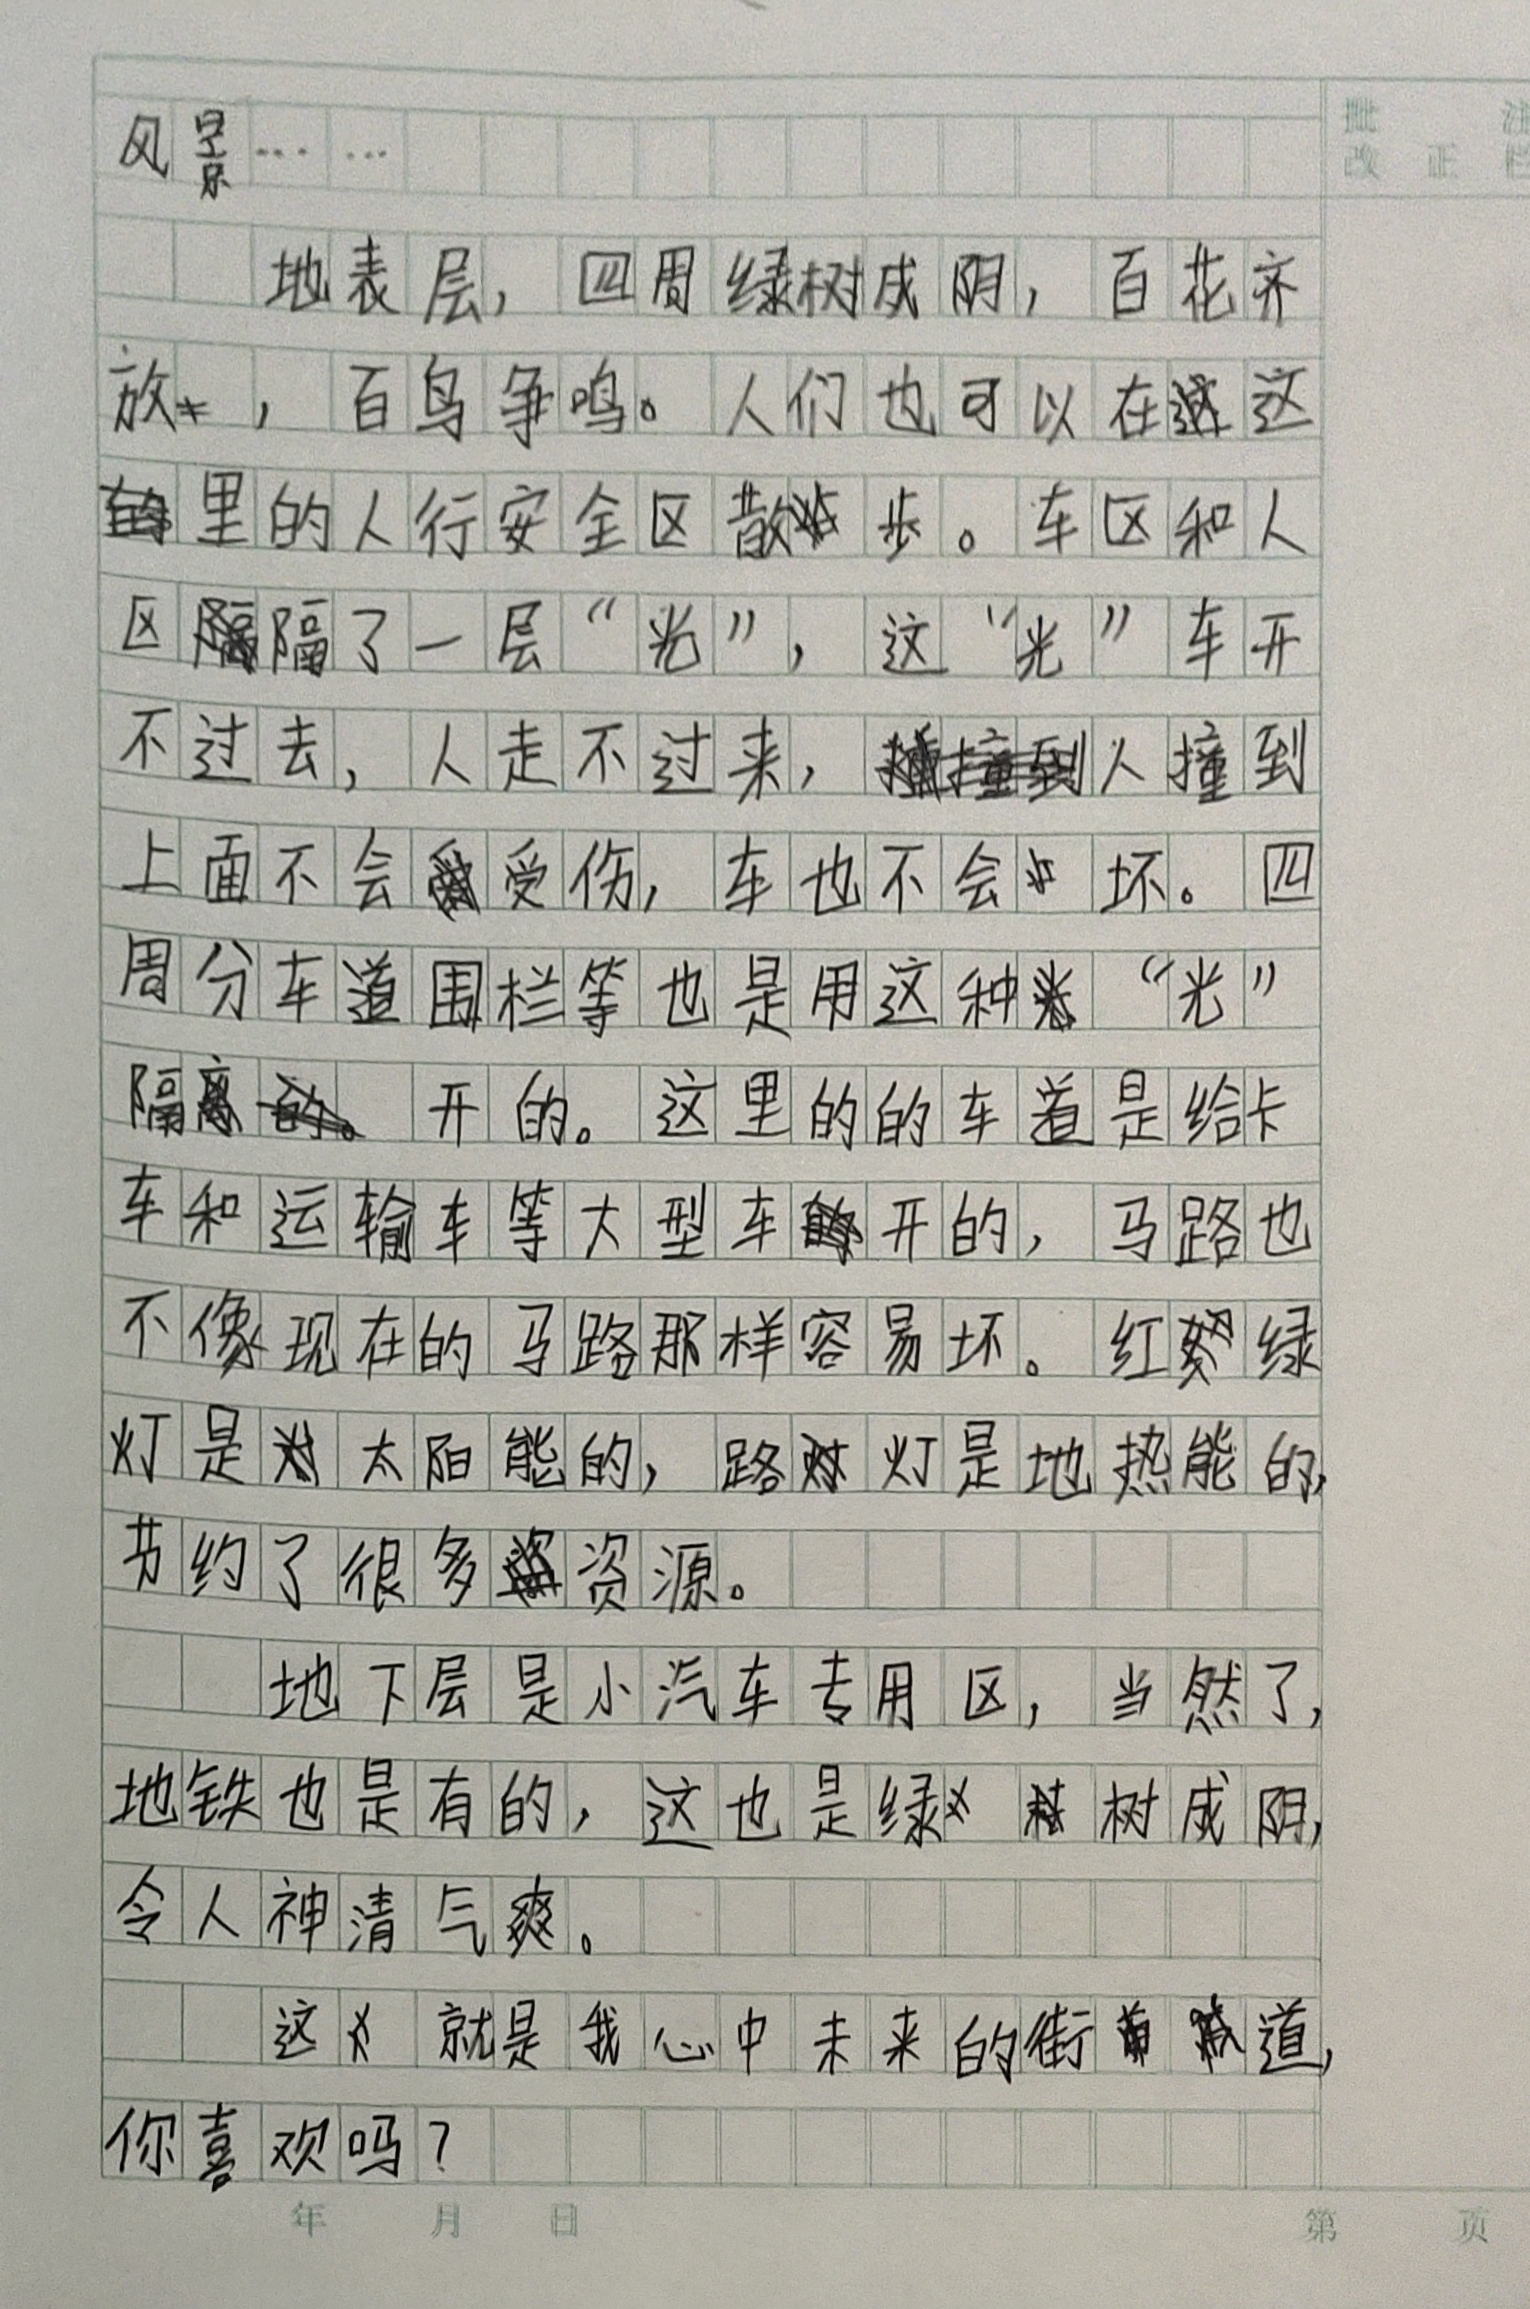 批 注
改 正 栏
风景……
地表层，四周绿树成阴，百花齐
放，百鸟争鸣。人们也可以在这
里的人行安全区散步。车区和人
区隔了一层“光”，这“光”车开
不过去，人走不过来，人撞到
上面不会受伤，车也不会坏。四
周分车道围栏等也是用这种“光”
隔开的。这里的的车道是给卡
车和运输车等大型车开的，马路也
不像现在的马路那样容易坏。红绿
灯是太阳能的，路灯是地热能的，
节约了很多资源。
地下层是小汽车专用区，当然了，
地铁也是有的，这也是绿树成阴，
令人神清气爽。
这就是我心中未来的街道，
你喜欢吗？
年 月 日 第 页